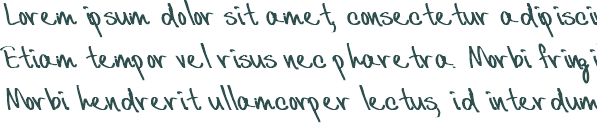 Lorem ipsum dolor sit amet, consectetur adipisci
Etiam tempor vel risus nec pharetra. Morbi fringi
Morbi hendrerit ullamcorper lectus, id interdum